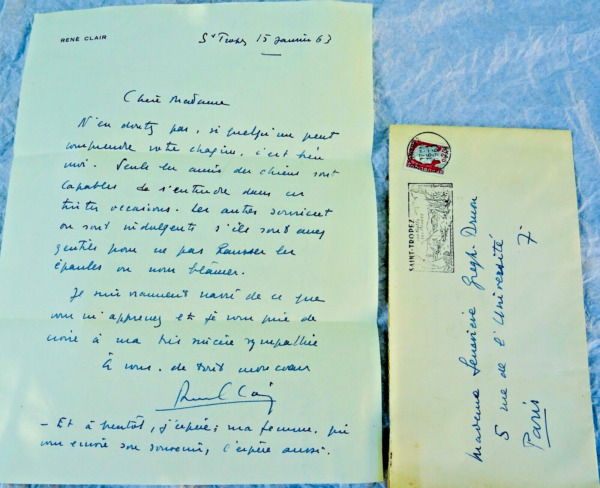 RENÉ CLAIR
St Tropez 15 Janvier 63
Chère Madame
N'en doutez pas, si quelqu'un peut
comprendre votre chagrin, c'est bien
moi. Seuls les amis des chiens sont
capables de s'entendre dans ces
tristes occasions. Les autres sourient
ou sont indulgents s'ils sont assez
gentils pour ne pas hausser les
épaules ou nous blâmer.
Je suis vraiment navré de ce que
vous m'apprenez et je vous prie de
croire à ma très sincère sympathie
À vous, de tout mon cœur
René Clair
- Et à bientôt, j'espère; ma femme, qui
vous envoie son souvenir, l'espère aussi.
SAINT-TROPEZ
Madame Geneviève Gregh-Druon
5 rue de l'Université
Paris 7